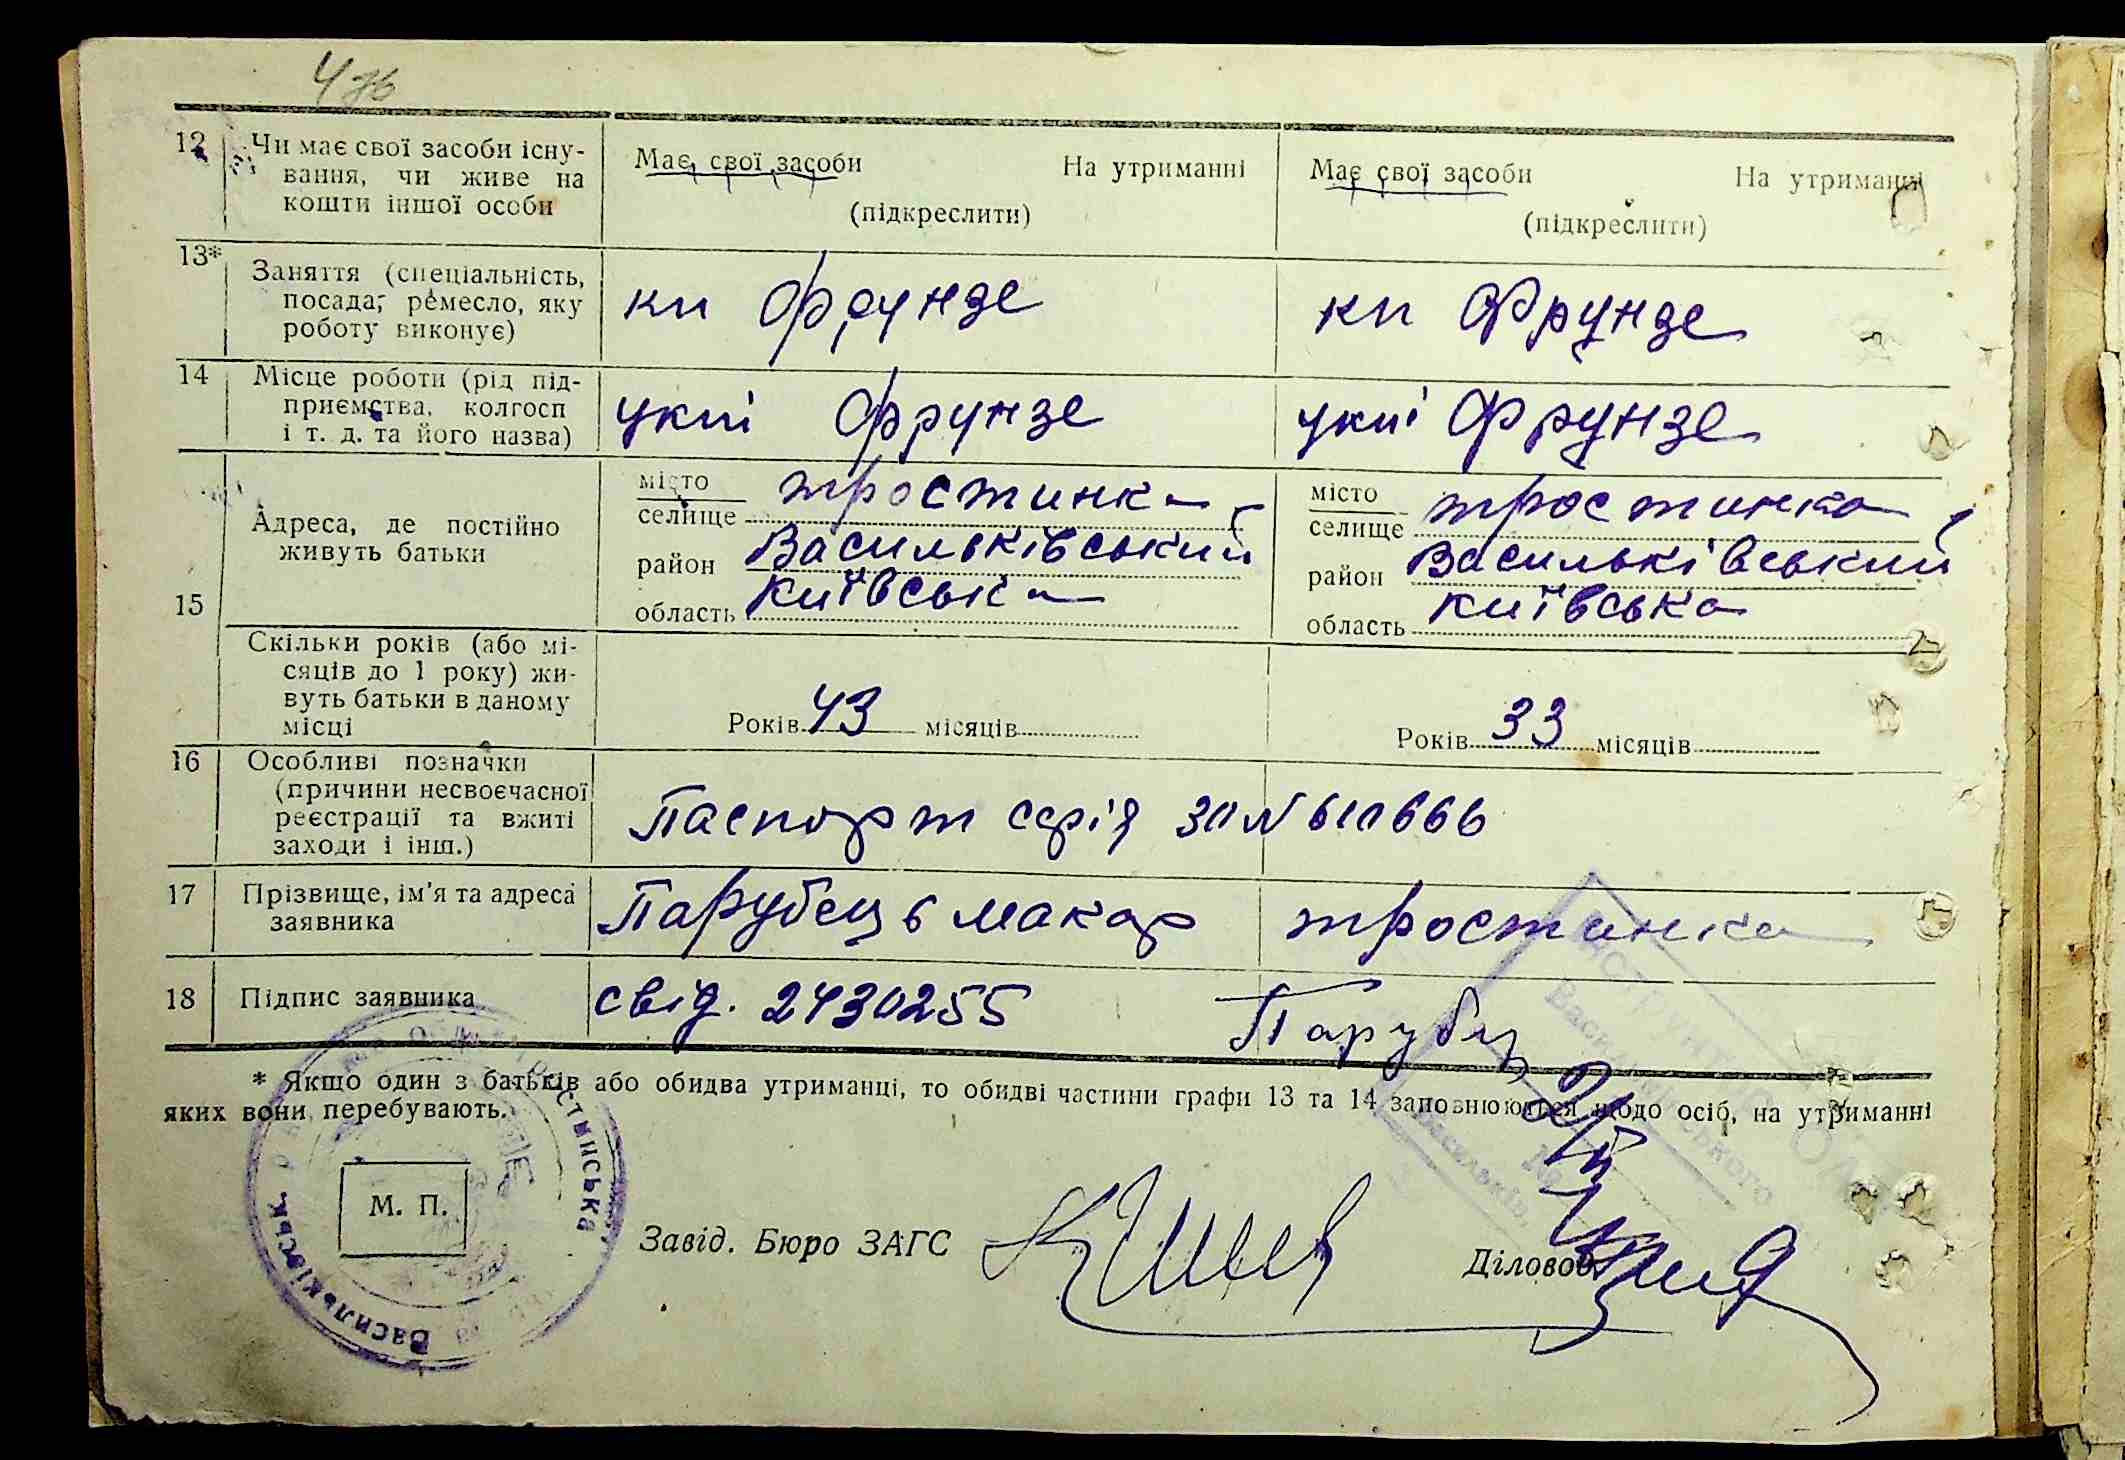 12 Чи має свої засоби існу-
вання, чи живе на
кошти іншої особи
Має свої засоби На утриманні
(підкреслити)
Має свої засоби На утриманні
(підкреслити)
13* Заняття (спеціальність,
посада, ремесло, яку
роботу виконує)
кп Фрунзе
кп Фрунзе
14 Місце роботи (рід під-
приємства, колгосп
і т. д. та його назва)
Фрунзе
Фрунзе
15
Адреса, де постійно
живуть батьки
місто
селище тростинка
район Васильківський
область київська
місто
селище тростинка
район Васильківський
область київська
Скільки років (або мі-
сяців до 1 року) жи-
вуть батьки в даному
місці
Років 43 місяців
Років 33 місяців
16 Особливі позначки
(причини несвоєчасної
реєстрації та вжиті
заходи і інш.)
Паспорт серія
17 Прізвище, ім'я та адреса
заявника
Парубець макар тростинка
18 Підпис заявника
свід. 2430255
* Якщо один з батьків або обидва утриманці, то обидві частини графи 13 та 14 заповнюються щодо осіб, на утриманні
яких вони перебувають.
М. П.
Завід. Бюро ЗАГС
Діловод